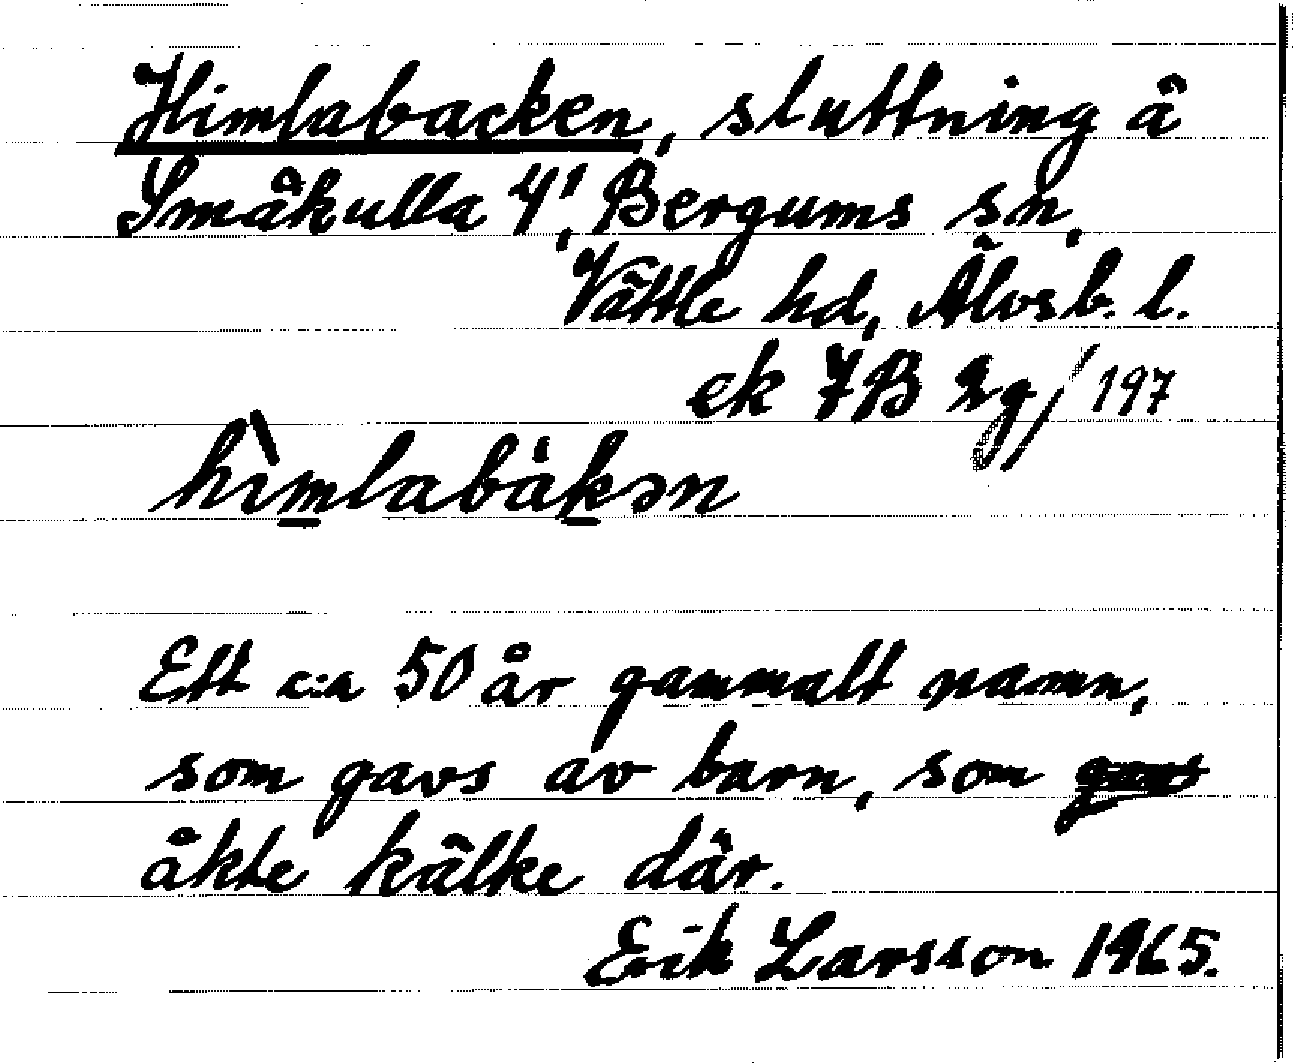 Himlabacken, sluttning å
Småkulla 4¹, Bergums sn,
Vättle hd, Älvsb. l.
ek 7B 2g / 197
hìmlabàkən
Ett c:a 50 år gammalt namn,
som gavs av barn, som
åkte kälke där.
Erik Larsson 1965.